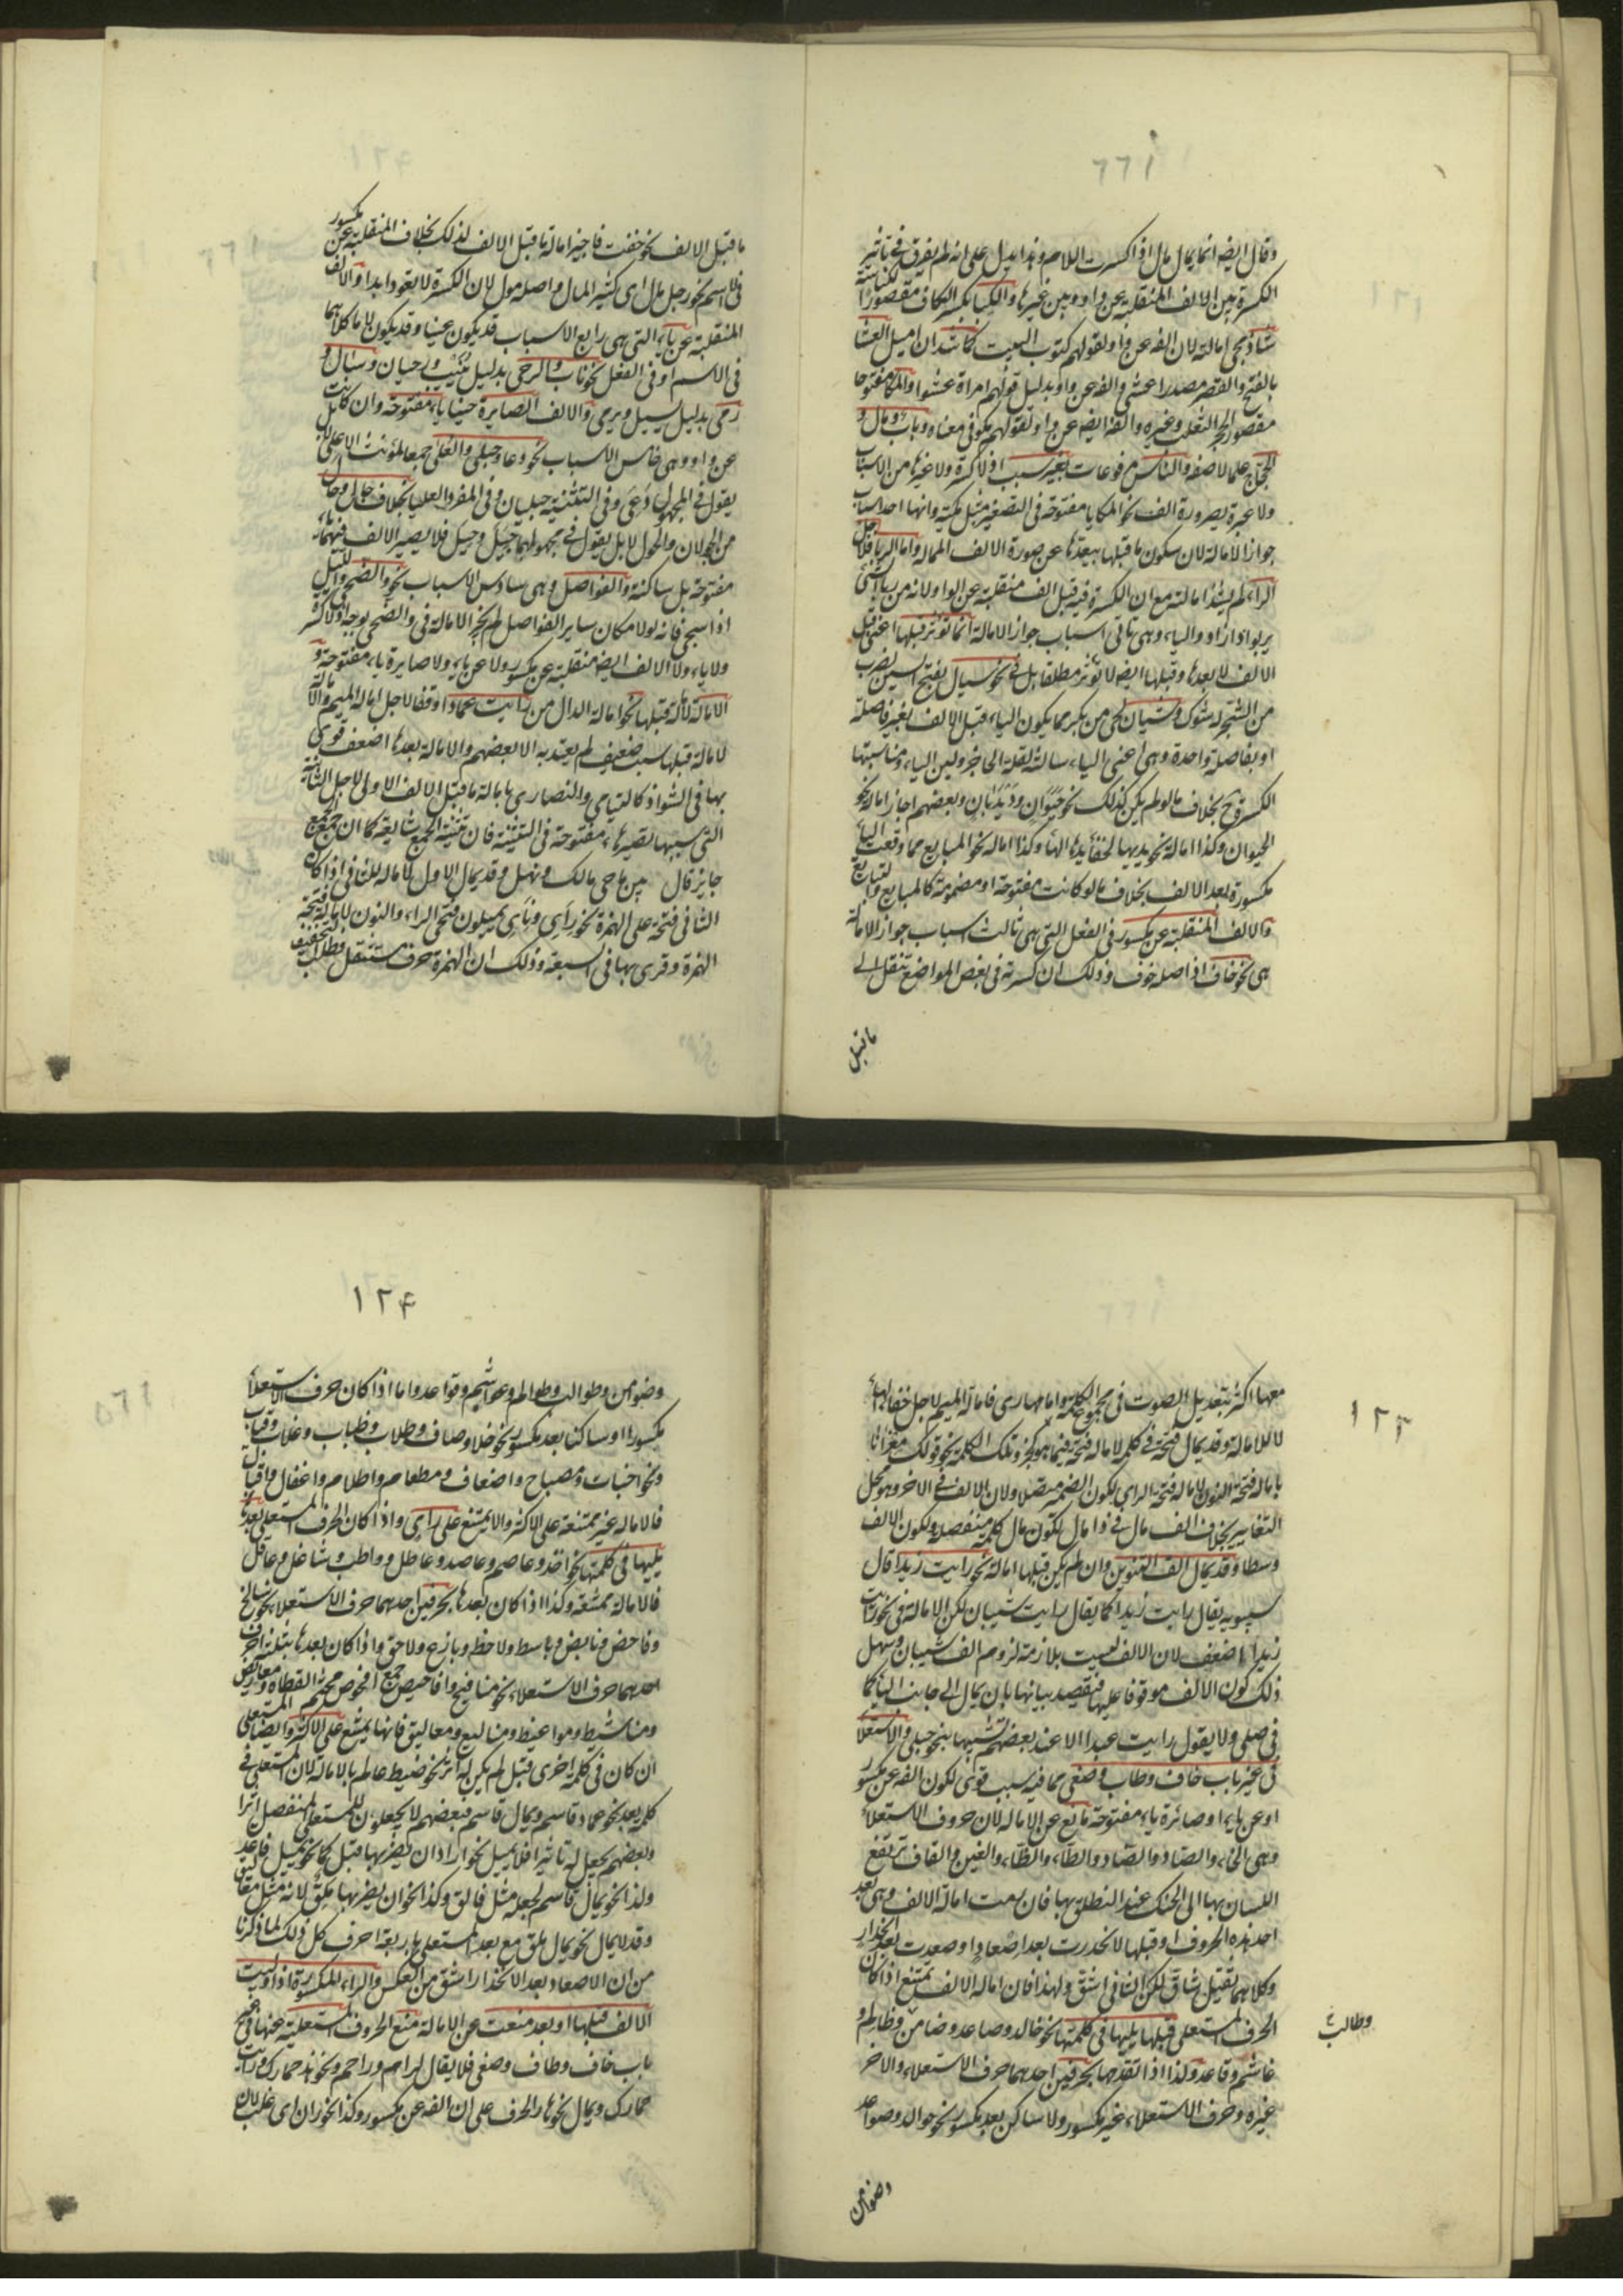 وقال ايضه انما يمال مال اذا كسرت اللام وهذا يدل على انه لم يفرق في تأثير
الكسرة بين الالف المنقلبة عن واو وبين غيرها والكبا بكسر الكاف مقصورا لكناسة
شاذ مجئ امالته لان الفه عن واو لقولهم كبوت البيت كما شذ ان اميل العشا
بالفتح والقصر مصدر اعشى والفه عن واو بدليل قولهم امراة عشوا والمكا مفتوحا
مقصورا لجحر الثعلب وغيره والفه ايضه عن واو لقولهم مكو في معناه وباب ومال و
الحجاج علما لا صفه والناس مرفوعات بغير سبب اذ لا كسرة ولا غيرها من الاسباب
ولا عبرة بصيرورة الف نحو المكا يا مفتوحة في التصغير مثل مكية وانها احد اسباب
جواز الامالة لان سكون ما قبلها يبعدها عن صورة الالف الممالة واما الربا فلاجل
الراء لم يشذ امالته مع ان الكسرة فيه قبل الف منقلبة عن الواو لانه من ربا الشئ
يربو اذا زاد والياء وهي ثاني اسباب جواز الامالة انما تؤثر قبلها اعني قبل
الالف لا بعدها وقبلها ايضه لا تؤثر مطلقا بل في نحو سيال بفتح السين لضرب
من الشجر له شوك وشيبان لحي من بكر مما يكون الياء قبل الالف بغير فاصلة
او بفاصلة واحدة وهي اعني الياء ساكنة لقلة الحاجز ولين الياء ومناسبتها
الكسرة ح بخلاف ما لو لم يكن كذلك نحو حيوان وديدبان وبعضهم اجاز امالة نحو
الحيوان وكذا امالة نحو يديها لخفاء الهاء وكذا امالة نحو المبايع مما وقعت الياء
مكسورة بعد الالف بخلاف ما لو كانت مفتوحة او مضمومة كالمبايع والتبايع
والالف المنقلبة عن مكسور في الفعل التي هي ثالث اسباب جواز الامالة
هي نحو خاف اذ اصله خوف وذلك ان كسرته في بعض المواضع تنقل الى
ما قبل
ما قبل الالف نحو خفت فاجيز امالة ما قبل الالف لذلك بخلاف المنقلبة عن مكسور
في الاسم نحو رجل مال اي كثير المال واصله مول لان الكسرة لا تعود ابدا والالف
المنقلبة عن ياء التي هي رابع الاسباب قد يكون عينا وقد يكون لاما كلاهما
في الاسم او في الفعل نحو ناب والرحى بدليل نييب ورحيان وسال و
رمى بدليل يسيل ويرمي والالف الصايرة حينا ياء مفتوحة وان كانت
عن واو وهي خامس الاسباب نحو دعا وحبلى والعلى جمعا لمؤنث الاعلى
يقول في المجهول دعي وفي التثنية حبليان وفي المفرد العليا بخلاف جال وحال
من الجولان والحول لا بل يقول في مجهولهما جيل وحيل فلا يصير الالف فيهما ياء
مفتوحة بل ساكنة والفواصل وهي سادس الاسباب نحو والضحى والليل
اذا سجى فانه لولا مكان ساير الفواصل لم يجز الامالة في والضحى بوجه اذ لا كسر
ولا ياء ولا الالف ايضه منقلبة عن مكسور ولا عن ياء ولا صايرة ياء مفتوحة و
الامالة لامالة قبلها نحو امالة الدال من رايت عمادا وقفا لاجل امالة الميم والا
لامالة قبلها سبب ضعيف لم يعتد به الا بعضهم والامالة بعدها اضعف قرئ
بها في الشواذ كاليتامى والنصارى بامالة ما قبل الالف الاولى لاجل الثانية
التي سببها تصييرها ياء مفتوحة في التثنية فان تثنية الجمع شايعة كما ان جمع الجمع
جايز قال بين رماحي مالك ونهشل وقد يمال الاول لامالة الثاني اذا كان
الثاني فتحة على الهمزة نحو رأى ونأى يميلون فتحتي الراء والنون لامالة فتحة
الهمزة وقرئ بها في السبعة وذلك ان الهمزة حرف مستثقل فطلب التخفيف
١٢٣
معها اكثر بتعديل الصوت في مجموع الكلمة واما مهارى فامالة الميم لاجل خفاء الهاء
لا للامالة وقد يمال فتحة في كلمة لامالة فتحة فيما هو كجزء تلك الكلمة نحو قولك معزانا
بامالة فتحة النون لامالة فتحة الزاي لكون الضمير متصلا ولان الالف في الاخر وهو محل
التغاير بخلاف الف مال في ذا مال لكون مال كلمة منفصلة ولكون الالف
وسطا وقد يمال الف التنوين وان لم يكن قبلها امالة نحو رايت زيدا قال
سيبويه يقال رايت زيدا كما يقال رايت شيبان لكن الامالة في نحو رايت
زيدا اضعف لان الالف ليست بلازمة لزوم الف شيبان وسهل
ذلك كون الالف موقوفا عليها فيقصد بيانها بان يمال الى جانب الياء كما
في حبلى ولا يقول رايت عبدا الا عند بعضهم تشبيها بنحو حبلى والاستعلاء
في غير باب خاف وطاب وصغى مما فيه سبب قوي لكون الفه عن مكسور
او عن ياء او صائرة ياء مفتوحة مانع عن الامالة لان حروف الاستعلاء
وهي الخاء والصاد والضاد والطاء والظاء والغين والقاف ترتفع
اللسان بها الى الحنك عند النطق بها فان رمت امالة الالف وهي بعد
احد هذه الحروف او قبلها لانحدرت بعد اصعاد او صعدت بعد انحدار
وكلاهما ثقيل شاق لكن الثاني اشق ولهذا فان امالة الالف يمتنع اذا كان
الحرف المستعلي قبلها يليها في كلمتها نحو خالد وصاعد وضامن وظالم و
وطالب
غاشم وقاعد وكذا اذا تقدمها بحرفين احدهما حرف الاستعلاء والاخر
غيره وحرف الاستعلاء غير مكسور ولا ساكن بعد مكسور نحو خوالد وصواعد
وضوامن
١٢٤
وضوامن وطوالب وظوالم وغواشم وقواعد واما اذا كان حرف الاستعلاء
مكسورا او ساكنا بعد مكسور نحو خلاف وصاف وطلاب وظباب وغلاب وقباب
ونحو اخبات ومصباح واضعاف ومطعام واظلام واغفال واقبال
فالامالة غير ممتنعة على الاكثر والا يمتنع على راي واذا كان الحرف المستعلي بعدها
يليها في كلمتها نحو اخذ وعاصم وعاضد وعاطل وواظب وشاغل وعاقل
فالامالة ممتنعة وكذا اذا كان بعدها بحرفين احدهما حرف الاستعلاء نحو سالخ
وفاحص ونابض وباسط ولاحظ وبازغ ولاحق واذا كان بعدها بثلثة احرف
احدهما حرف الاستعلاء نحو منافيخ وافاحيص جمع افحوص مجثم القطاة ومعاريض
ومناشيط ومواعيظ ومناليغ ومعاليق فانها يمتنع على الاكثر وايضا المستعلي
ان كان في كلمة اخرى قبل لم يكن له اثر نحو ضبط عالم بالامالة لان المستعلي في
كلمة بعد نحو عماد قاسم وبمال قاسم فبعضهم لا يجعلون للمستعلي المنفصل اثرا
وبعضهم يجعل له تاثيرا فلا يميل نحو اراد ان يضربها قبل كما نحو يميل قاعد
ولذا نحو بمال قاسم لجعله مثل فالق وكذا نحو ان يضربها ملق لانه مثل معاليق
وقد لا يمال نحو بمال ملق مع بعد المستعلي باربعة احرف كل ذلك لما ذكرنا
من ان الاصعاد بعد الانحدار اشق من العكس والراء المكسورة اذا وليت
الالف قبلها او بعد منعت عن الامالة منع الحروف المستعلية عنها في غير
باب خاف وطاف وصغى فلا يقال لم رام وراحم ونحو هذا حمارك ورايت
حمارك ويمال نحو هار الحرف على ان الفه عن مكسور وكذا نحو ران اي غلب لان